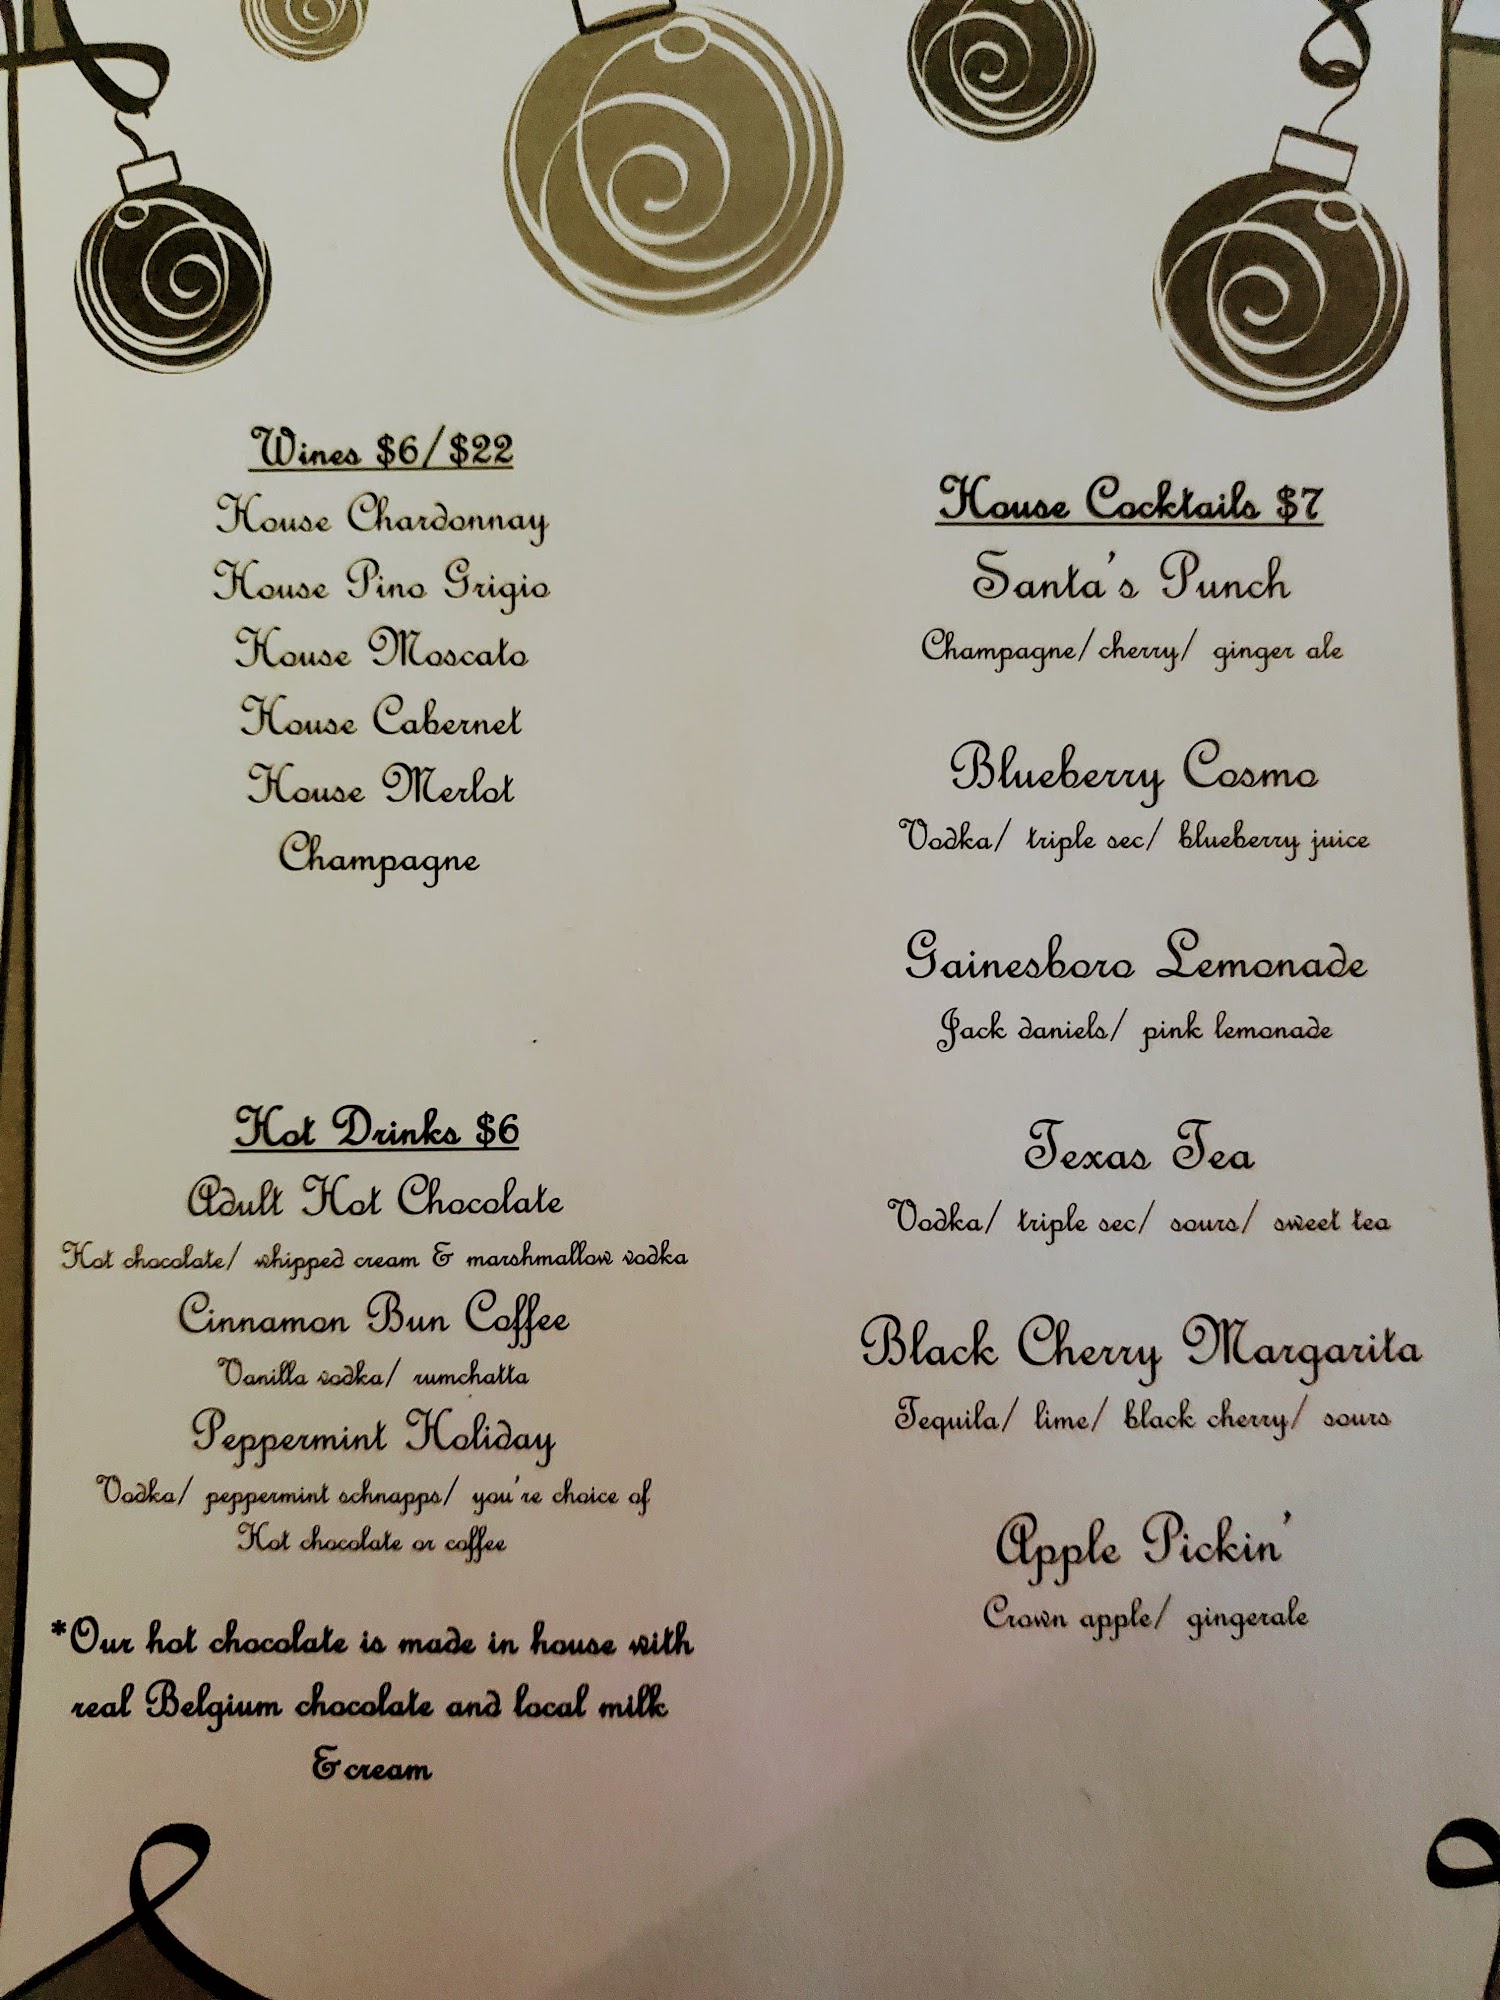 Wines $6/$22
House Chardonnay
House Pino Grigio
House Moscato
House Cabernet
House Merlot
Champagne
Hot Drinks $6
Adult Hot Chocolate
Hot chocolate/ whipped cream & marshmallow vodka
Cinnamon Bun Coffee
Vanilla vodka/ rumchatta
Peppermint Holiday
Vodka/ peppermint schnapps/ you're choice of
Hot chocolate or coffee
*Our hot chocolate is made in house with
real Belgium chocolate and local milk
& cream
House Cocktails $7
Santa's Punch
Champagne/ cherry/ ginger ale
Blueberry Cosmo
Vodka/ triple sec/ blueberry juice
Gainesboro Lemonade
Jack daniels/ pink lemonade
Texas Tea
Vodka/ triple sec/ sours/ sweet tea
Black Cherry Margarita
Tequila/ lime/ black cherry/ sours
Apple Pickin'
Crown apple/ gingerale